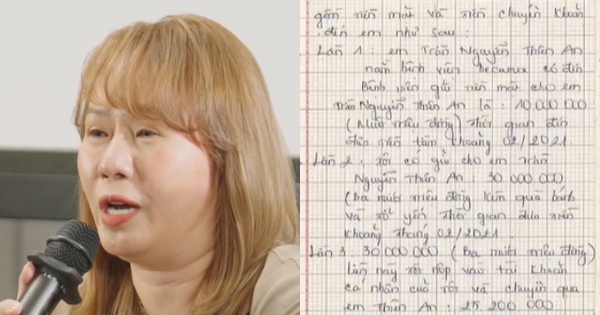 gồm tiền mặt và tiền chuyển khoản
đến em như sau :
Lần 1 : em Trần Nguyễn Thiên An
nằm bệnh viện becamex có đến
Bệnh viện gửi tiền mặt cho em
Trần Nguyễn Thiên An là : 10 000 000
(Mười triệu đồng) thời gian đến
đưa tiền tầm khoảng 02/2021
Lần 2 : tôi có gửi cho em Trần
Nguyễn Thiên An : 30 000 000
(Ba mươi triệu đồng kèm quà bánh
và tổ yến thời gian đưa tiền
khoảng tháng 02/2021
Lần 3 : 30 000 000 (Ba mươi triệu đồng)
lần này tôi nộp vào tài khoản
cá nhân của tôi và chuyển qua
em Thiên An : 25 200 000